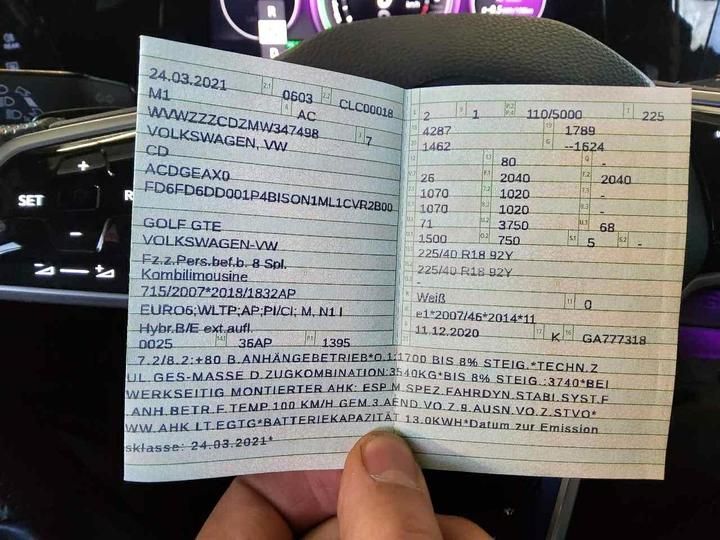 R
D
SET
24.03.2021 2.1 0603 2.2 CLC00018
M1 4 AC
WVWZZZCDZMW347498 3 7
VOLKSWAGEN, VW
CD
ACDGEAX0
FD6FD6DD001P4BISON1ML1CVR2B00
GOLF GTE
VOLKSWAGEN-VW
Fz.z.Pers.bef.b. 8 Spl.
Kombilimousine
715/2007*2018/1832AP
EURO6;WLTP;AP;PI/CI; M, N1 I
Hybr.B/E ext.aufl.
0025 36AP 1395
2 1 110/5000 225
4287 1789
1462 --1624
80 -
26 2040 2040
1070 1020 -
1070 1020 -
71 3750 68
1500 750 5 -
225/40 R18 92Y
225/40 R18 92Y
-
Weiß 11 0
e1*2007/46*2014*11
11.12.2020 17 K 16 GA777318
7.2/8.2:+80 B.ANHÄNGEBETRIEB*O.1:1700 BIS 8% STEIG.*TECHN.Z
UL.GES-MASSE D.ZUGKOMBINATION:3540KG*BIS 8% STEIG.:3740*BEI
WERKSEITIG MONTIERTER AHK: ESP M.SPEZ.FAHRDYN.STABI.SYST.F
.ANH.BETR.F.TEMP.100 KM/H GEM.3.AEND.VO.Z.9.AUSN.VO.Z.STVO*
WW.AHK LT.EGTG*BATTERIEKAPAZITÄT 13.0KWH*Datum zur Emission
sklasse: 24.03.2021*